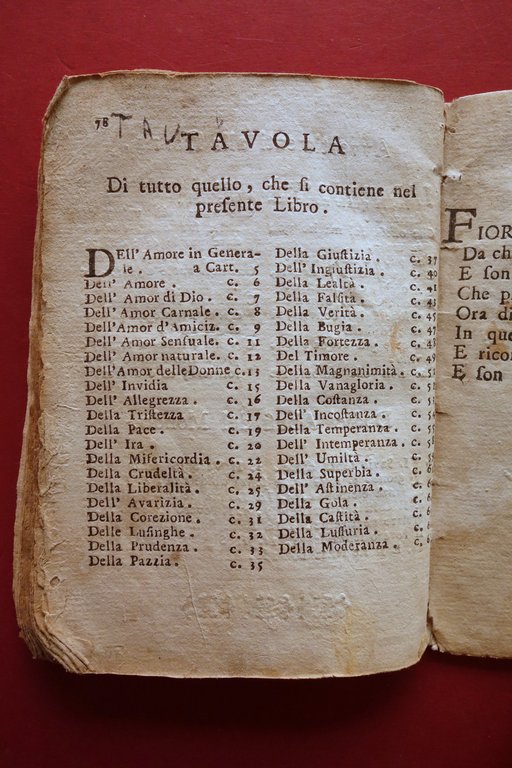 78 TAU
TAVOLA
Di tutto quello, che si contiene nel
presente Libro.
DEll' Amore in Genera-
le. a Cart. 5
Dell' Amore. c. 6
Dell' Amor di Dio. c. 7
Dell' Amor Carnale. c. 8
Dell'Amor d'Amiciz. c. 9
Dell' Amor Sensuale. c. 11
Dell' Amor naturale. c. 12
Dell'Amor delle Donne c. 13
Dell' Invidia c. 15
Dell' Allegrezza. c. 16
Della Tristezza c. 17
Della Pace. c. 19
Dell' Ira. c. 20
Della Misericordia. c. 22
Della Crudeltà. c. 24
Della Liberalità. c. 25
Dell' Avarizia. c. 29
Della Corezione. c. 31
Delle Lusinghe c. 32
Della Prudenza. c. 33
Della Pazzia. c. 35
Della Giustizia. c. 37
Dell' Ingiustizia. c. 40
Della Lealtà. c. 41
Della Falsità. c. 43
Della Verità. c. 45
Della Bugia. c. 47
Della Fortezza. c. 48
Del Timore. c. 49
Della Magnanimità. c. 5
Della Vanagloria. c. 5
Della Costanza. c. 5
Dell' Incostanza. c. 5
Della Temperanza. c. 5
Dell' Intemperanza. c. 5
Dell' Umiltà. c. 5
Della Superbia. c. 6
Dell' Astinenza. c. 6
Della Gola. c. 6
Della Castità. c. 6
Della Lussuria. c. 6
Della Moderanza. c. 6
FIOR
Da ch
E son
Che p
Ora di
In que
E rico
E son